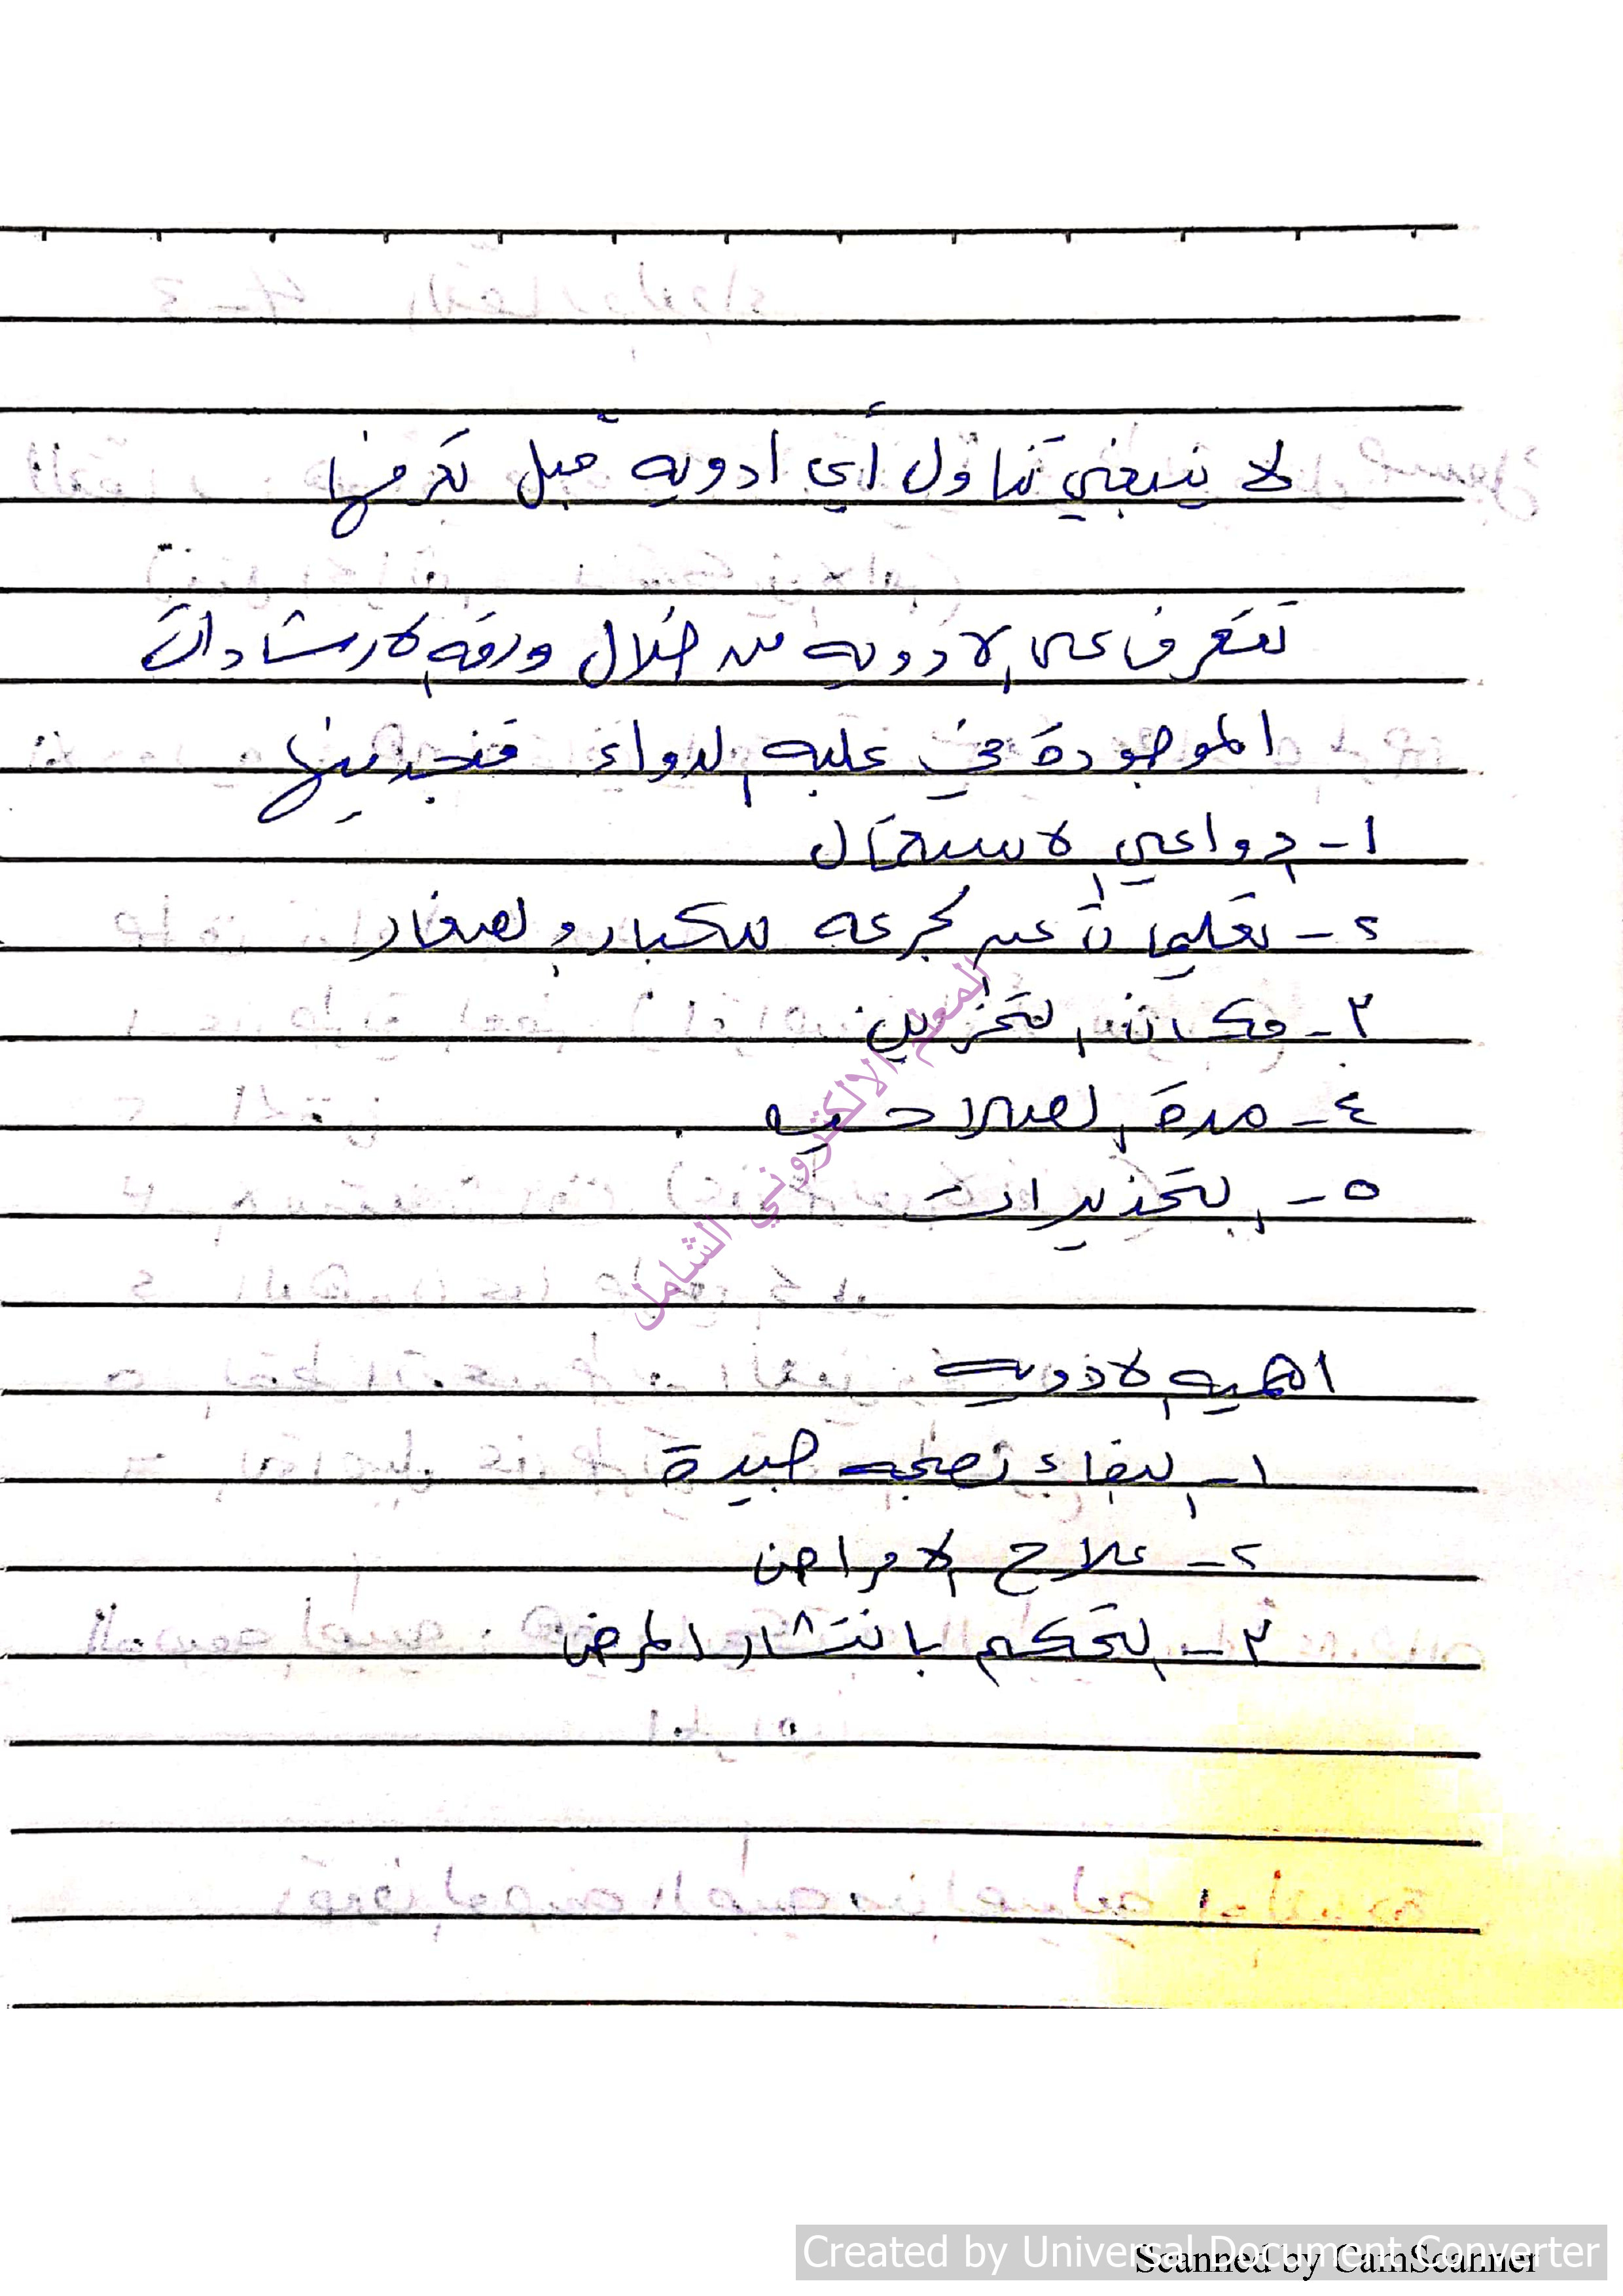 لا ينبغي تناول أي أدويه قبل تعرفها
نتعرف على الادويه من خلال ورقه الارشادات
الموجودة في علبه الدواء فنجد فيها
١- دواعي الاستعمال
٢- تعليمات عن الجرعه للكبار والصغار
٣- مكان التخزين
٤- مدة الصلاحيه
٥- التحذيرات
المعلم الالكتروني الشامل
اهميه الادويه
١- البقاء بصحه جيدة
٢- علاج الامراض
٣- التحكم بانتشار المرض
Created by Universal Document Converter
Scanned by CamScanner